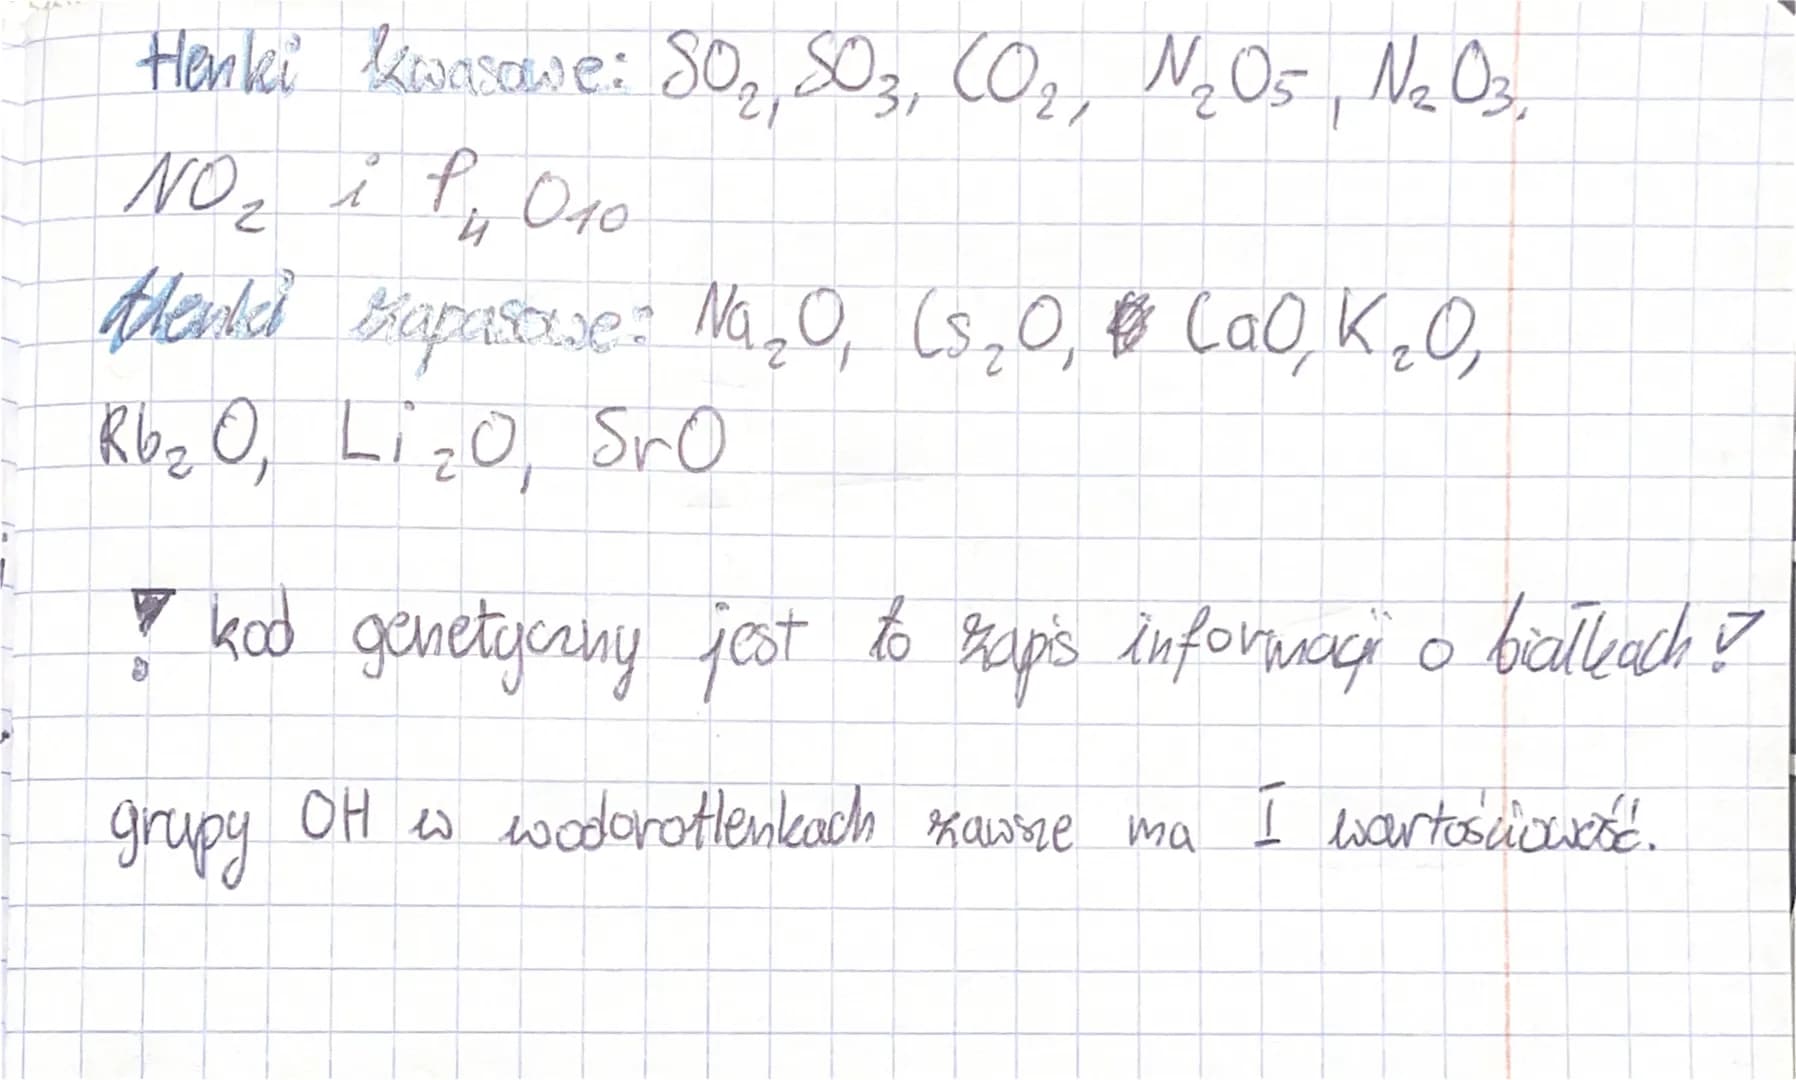 tlenki kwasowe: SO₂, SO₃, CO₂, N₂O₅, N₂O₃,
NO₂ i P₄O₁₀
tlenki zapasowe: Na₂O, Cs₂O, CaO, K₂O,
Rb₂O, Li₂O, SrO
! kod genetyczny jest to zapis informacji o białkach!
grupy OH w wodorotlenkach zawsze ma I wartościowość.